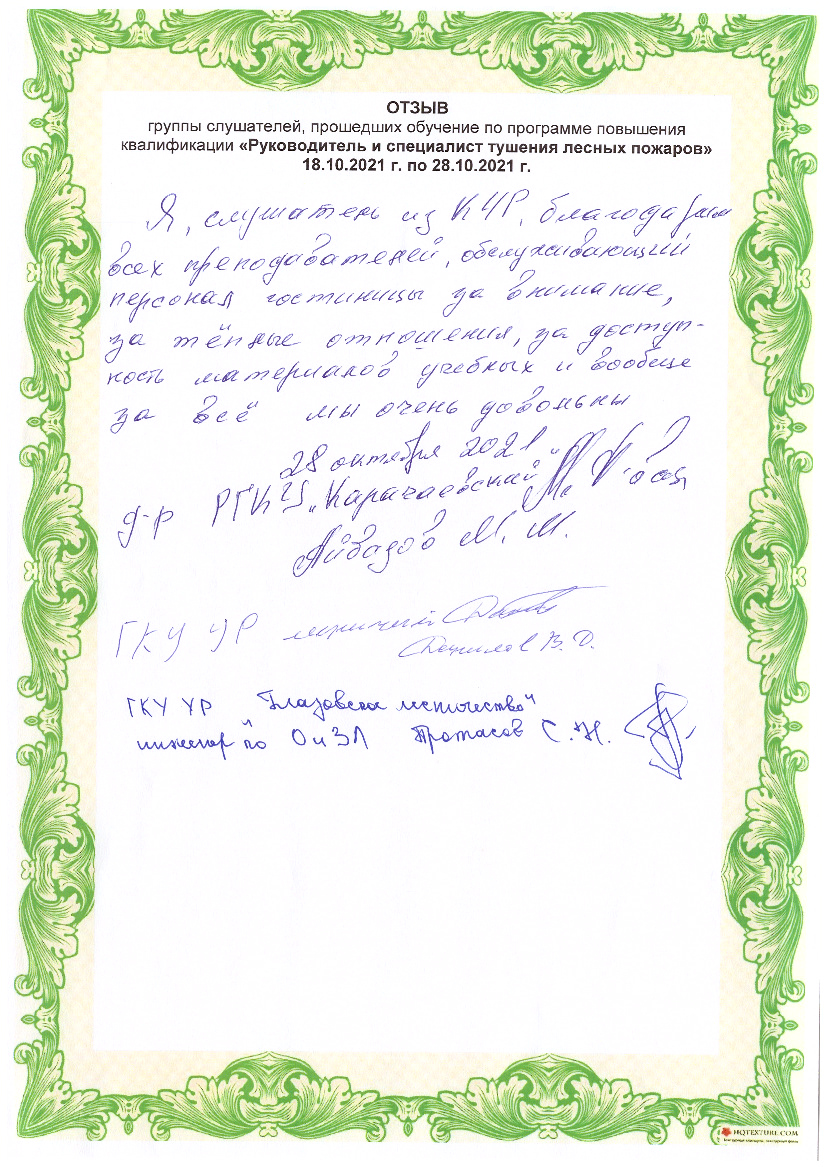 ОТЗЫВ
группы слушателей, прошедших обучение по программе повышения
квалификации «Руководитель и специалист тушения лесных пожаров»
18.10.2021 г. по 28.10.2021 г.
Я, слушатель из КЧР, благодарим
всех преподавателей, обслуживающий
персонал гостиницы за внимание,
за тёплые отношения, за доступ-
ность материалов учебных и вообще
за всё мы очень довольны
28 октября 2021
д-р РГКУ „Карачаевский
Айбазов М. М.
ГКУ УР лесничий
Данилов В. Д.
ГКУ УР "Глазовское лесничество"
инженер по ОиЗЛ Протасов С. Н.
HQTEXTURE.COM